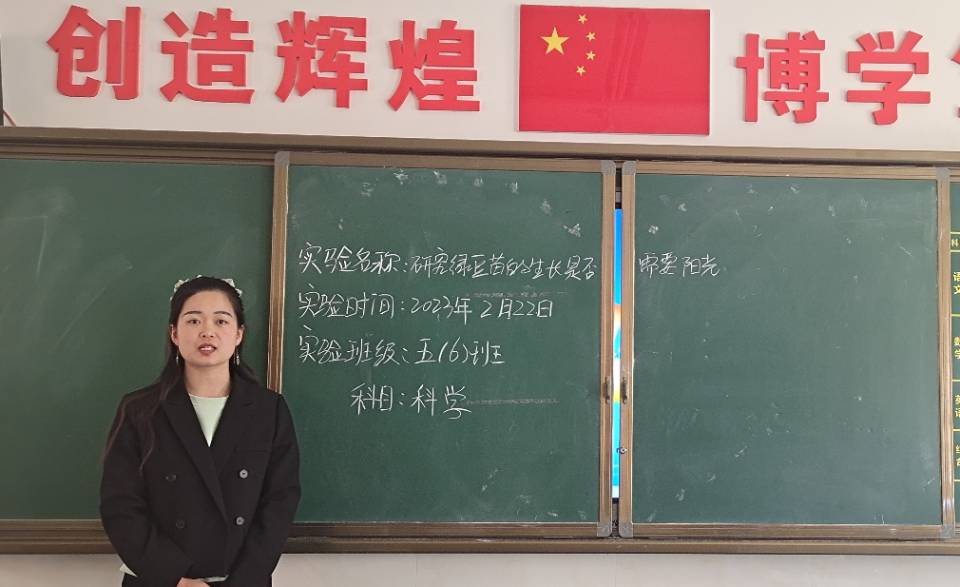 创造辉煌
博学
实验名称:研究绿豆苗的生长是否需要阳光
实验时间:2023年2月22日
实验班级:五(6)班
科目:科学
科
语文
数学
英语